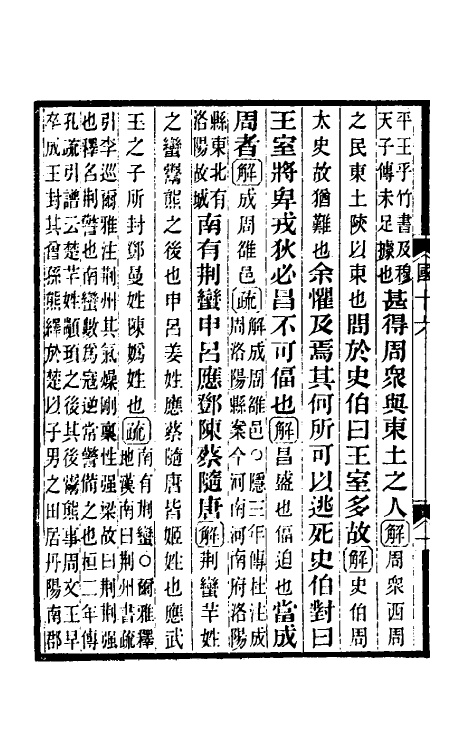 平王乎竹書及穆
天子傳未足據也
甚得周衆與東土之人解周衆西周
之民東土陝以東也問於史伯曰王室多故解史伯周
太史故猶難也余懼及焉其何所可以逃死史伯對曰
王室將卑戎狄必昌不可偪也解昌盛也偪迫也當成
周者解成周雒邑疏
解成周雒邑○隱三年傳杜注成
周洛陽縣案今河南河南府洛陽
縣東北有
洛陽故城
南有荆蠻申呂應鄧陳蔡隨唐解荆蠻芈姓
之蠻鬻熊之後也申呂姜姓應蔡隨唐皆姬姓也應武
王之子所封鄧曼姓陳嬀姓也疏
南有荆蠻○爾雅釋
地漢南曰荆州書疏
引李巡爾雅注荆州其氣燥剛稟性强梁故曰荆荆强
也釋名荆警也南蠻數爲寇逆常警備之也桓二年傳
孔疏引譜云楚芈姓顓頊之後其後鬻熊事周文王早
卒成王封其曾孫熊繹於楚以子男之田居丹陽南郡
國十六